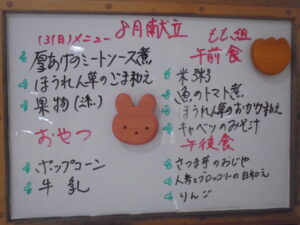 8月献立
(3(日)メニュー
厚あげのミートソース煮
ほうれん草のごま和え
果物(凍)
おやつ
ポップコーン
牛乳
もも組
午前食
米粥
魚のトマト煮
ほうれん草のおかか和え
キャベツのみそ汁
午後食
さつま芋のおじや
人参とブロッコリーの白和え
りんご